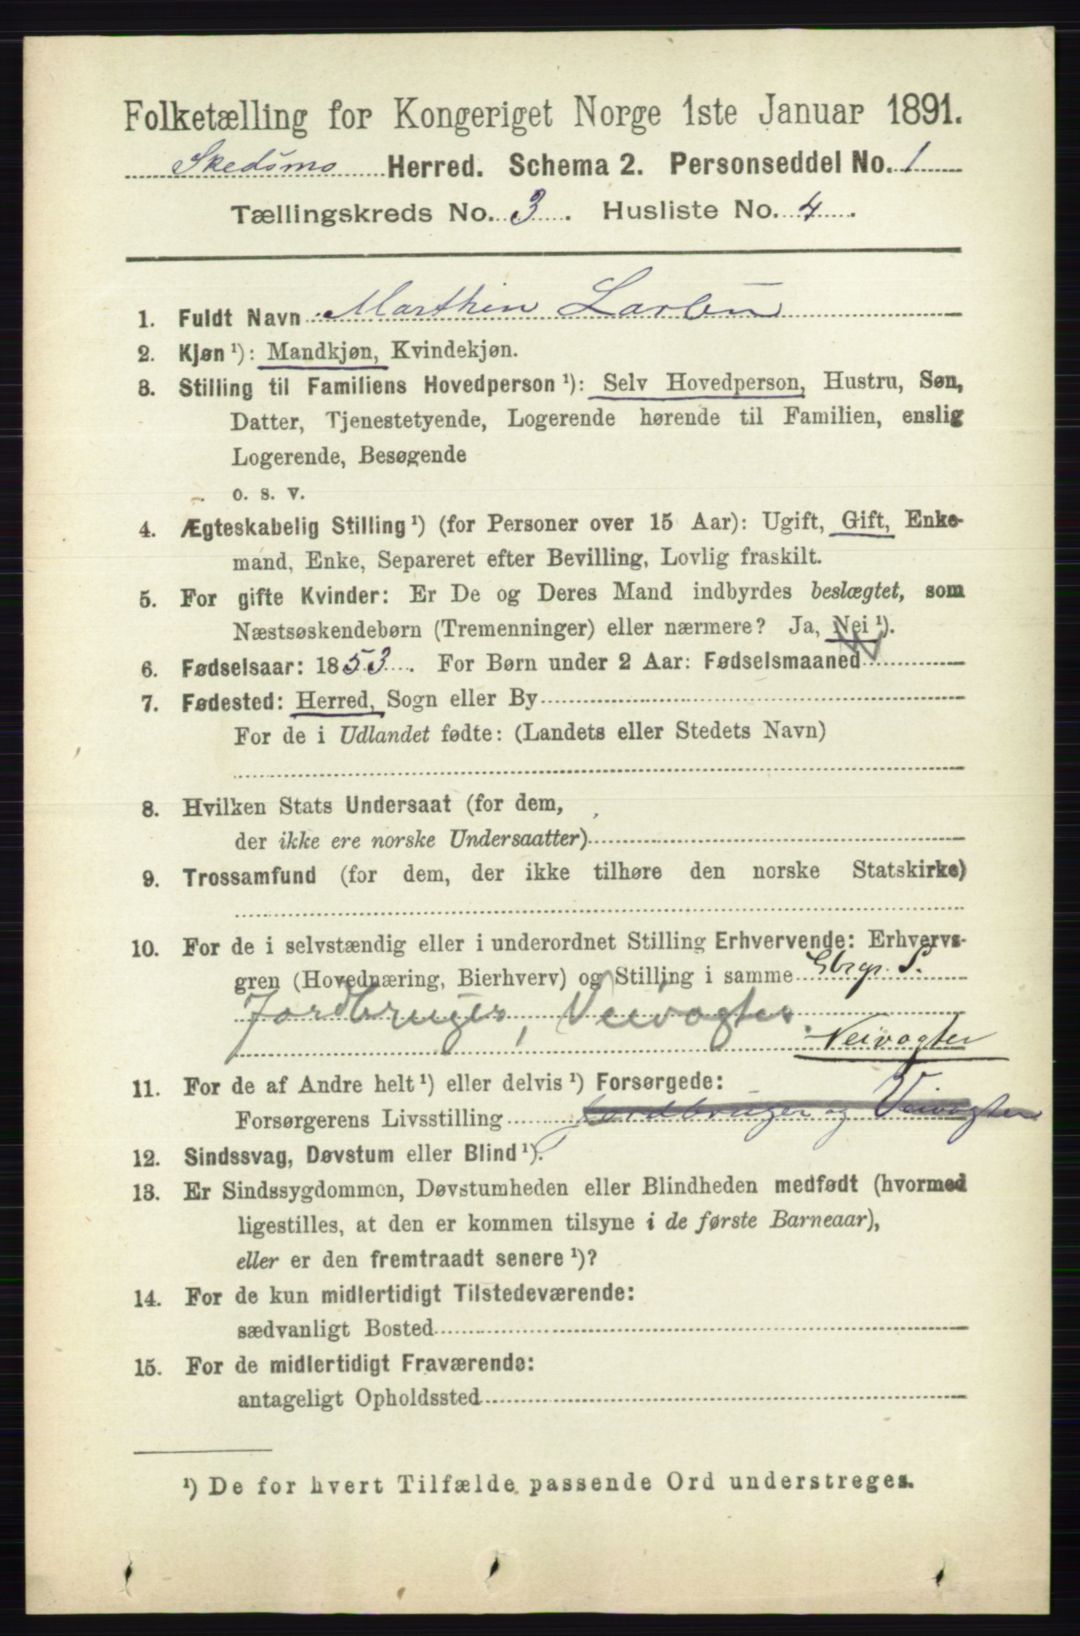 Folketælling for Kongeriget Norge 1ste Januar 1891.
Skedsmo Herred. Schema 2. Personseddel No. 1
Tællingskreds No. 3. Husliste No. 4.
1. Fuldt Navn Marthin Larsen
2. Kjøn ¹): Mandkjøn, Kvindekjøn.
3. Stilling til Familiens Hovedperson ¹): Selv Hovedperson, Hustru, Søn,
Datter, Tjenestetyende, Logerende hørende til Familien, enslig
Logerende, Besøgende
o. s. v.
4. Ægteskabelig Stilling ¹) (for Personer over 15 Aar): Ugift, Gift, Enke-
mand, Enke, Separeret efter Bevilling, Lovlig fraskilt.
5. For gifte Kvinder: Er De og Deres Mand indbyrdes beslægtet, som
Næstsøskendebørn (Tremenninger) eller nærmere? Ja, Nei ¹).
6. Fødselsaar: 1853. For Børn under 2 Aar: Fødselsmaaned
7. Fødested: Herred, Sogn eller By
For de i Udlandet fødte: (Landets eller Stedets Navn)
8. Hvilken Stats Undersaat (for dem,
der ikke ere norske Undersaatter)
9. Trossamfund (for dem, der ikke tilhøre den norske Statskirke)
10. For de i selvstændig eller i underordnet Stilling Erhvervende: Erhvervs-
gren (Hovednæring, Bierhverv) og Stilling i samme Gbrgr. S.
Jordbruger, Veivogter
Veivogter
11. For de af Andre helt ¹) eller delvis ¹) Forsørgede:
Forsørgerens Livsstilling Jordbruger og Veivogter
12. Sindssvag, Døvstum eller Blind ¹).
13. Er Sindssygdommen, Døvstumheden eller Blindheden medfødt (hvormed
ligestilles, at den er kommen tilsyne i de første Barneaar),
eller er den fremtraadt senere ¹)?
14. For de kun midlertidigt Tilstedeværende:
sædvanligt Bosted
15. For de midlertidigt Fraværende:
antageligt Opholdssted
¹) De for hvert Tilfælde passende Ord understreges.